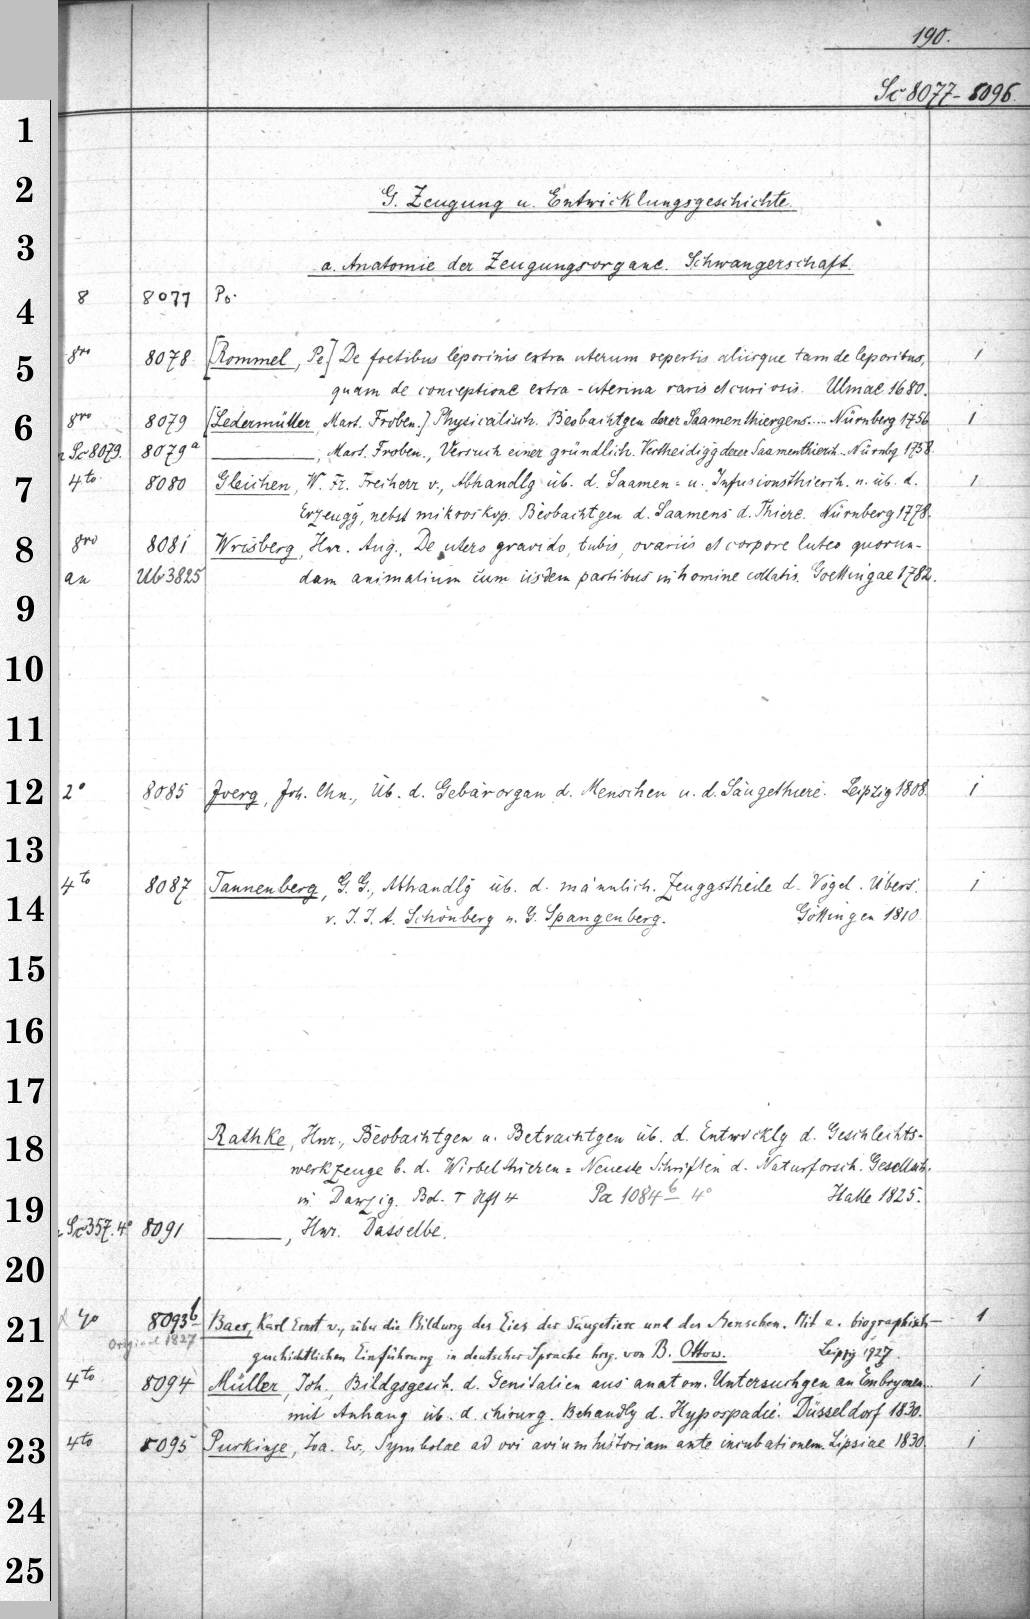 190.
Sc 8077-8096.
1
2 G. Zeugung u. Entwicklungsgeschichte.
3 a. Anatomie der Zeugungsorgane. Schwangerschaft.
4 8 8077 Po.
5 8vo 8078 [Rommel, Pe] De foetibus leporinis extra uterum repertis aliisque tam de leporibus, 1
quam de conceptione extra-uterina raris et curiosis. Ulmae 1680.
6 8vo 8079 [Ledermüller, Mart. Froben.] Physicalisch. Beobachtgen derer Saamenthiergens.... Nürnberg 1756 1
Sc 8079. 8079a ———, Mart. Froben., Versuch einer gründlich. Vertheidigg derer Saamenthierch.. Nürnbg 1758.
7 4to 8080 Gleichen, W. Fr. Freiherr v., Abhandlg üb. d. Saamen= u. Infusionsthierch. u. üb. d. 1
Erzeugg, nebst mikroskop. Beobachtgen d. Saamens d. Thiere. Nürnberg 1778.
8 8vo 8081 Wrisberg, Hnr. Aug., De utero gravido, tubis, ovariis et corpore luteo quorun-
an Ub 3825 dam animalium cum iisdem partibus in homine collatis. Goettingae 1782.
9
10
11
12 2° 8085 Joerg, Joh. Chn., Üb. d. Gebärorgan d. Menschen u. d. Säugethiere. Leipzig 1808. 1
13
4to 8087 Tannenberg, G. G., Abhandlg üb. d. männlich. Zeuggstheile d. Vögel. Übers. 1
14 v. J. J. A. Schönberg u. G. Spangenberg. Göttingen 1810
15
16
17
18 Rathke, Hnr., Beobachtgen u. Betrachtgen üb. d. Entwicklg d. Geschlechts-
werkzeuge b. d. Wirbelthieren = Neueste Schriften d. Naturforsch. Gesellsch.
19 in Danzig. Bd. I Hft 4 Pa 1084b 4° Halle 1825.
Sc 357. 4° 8091 ———, Hnr. Dasselbe.
20
21 4o 8093b Baer, Karl Ernst v., über die Bildung des Eies der Säugetiere und des Menschen. Mit e. biographisch- 1
Original 1827 geschichtlichen Einführung in deutscher Sprache hrsg. von B. Ottow. Leipzig 1927.
22 4to 8094 Müller, Joh., Bildgsgesch. d. Genitalien aus anatom. Untersuchgen an Embryonen.. 1
mit Anhang üb. d. chirurg. Behandlg d. Hypospadie. Düsseldorf 1830.
23 4to 8095 Purkinje, Joa. Ev., Symbolae ad ovi avium historiam ante incubationem. Lipsiae 1830. 1
24
25